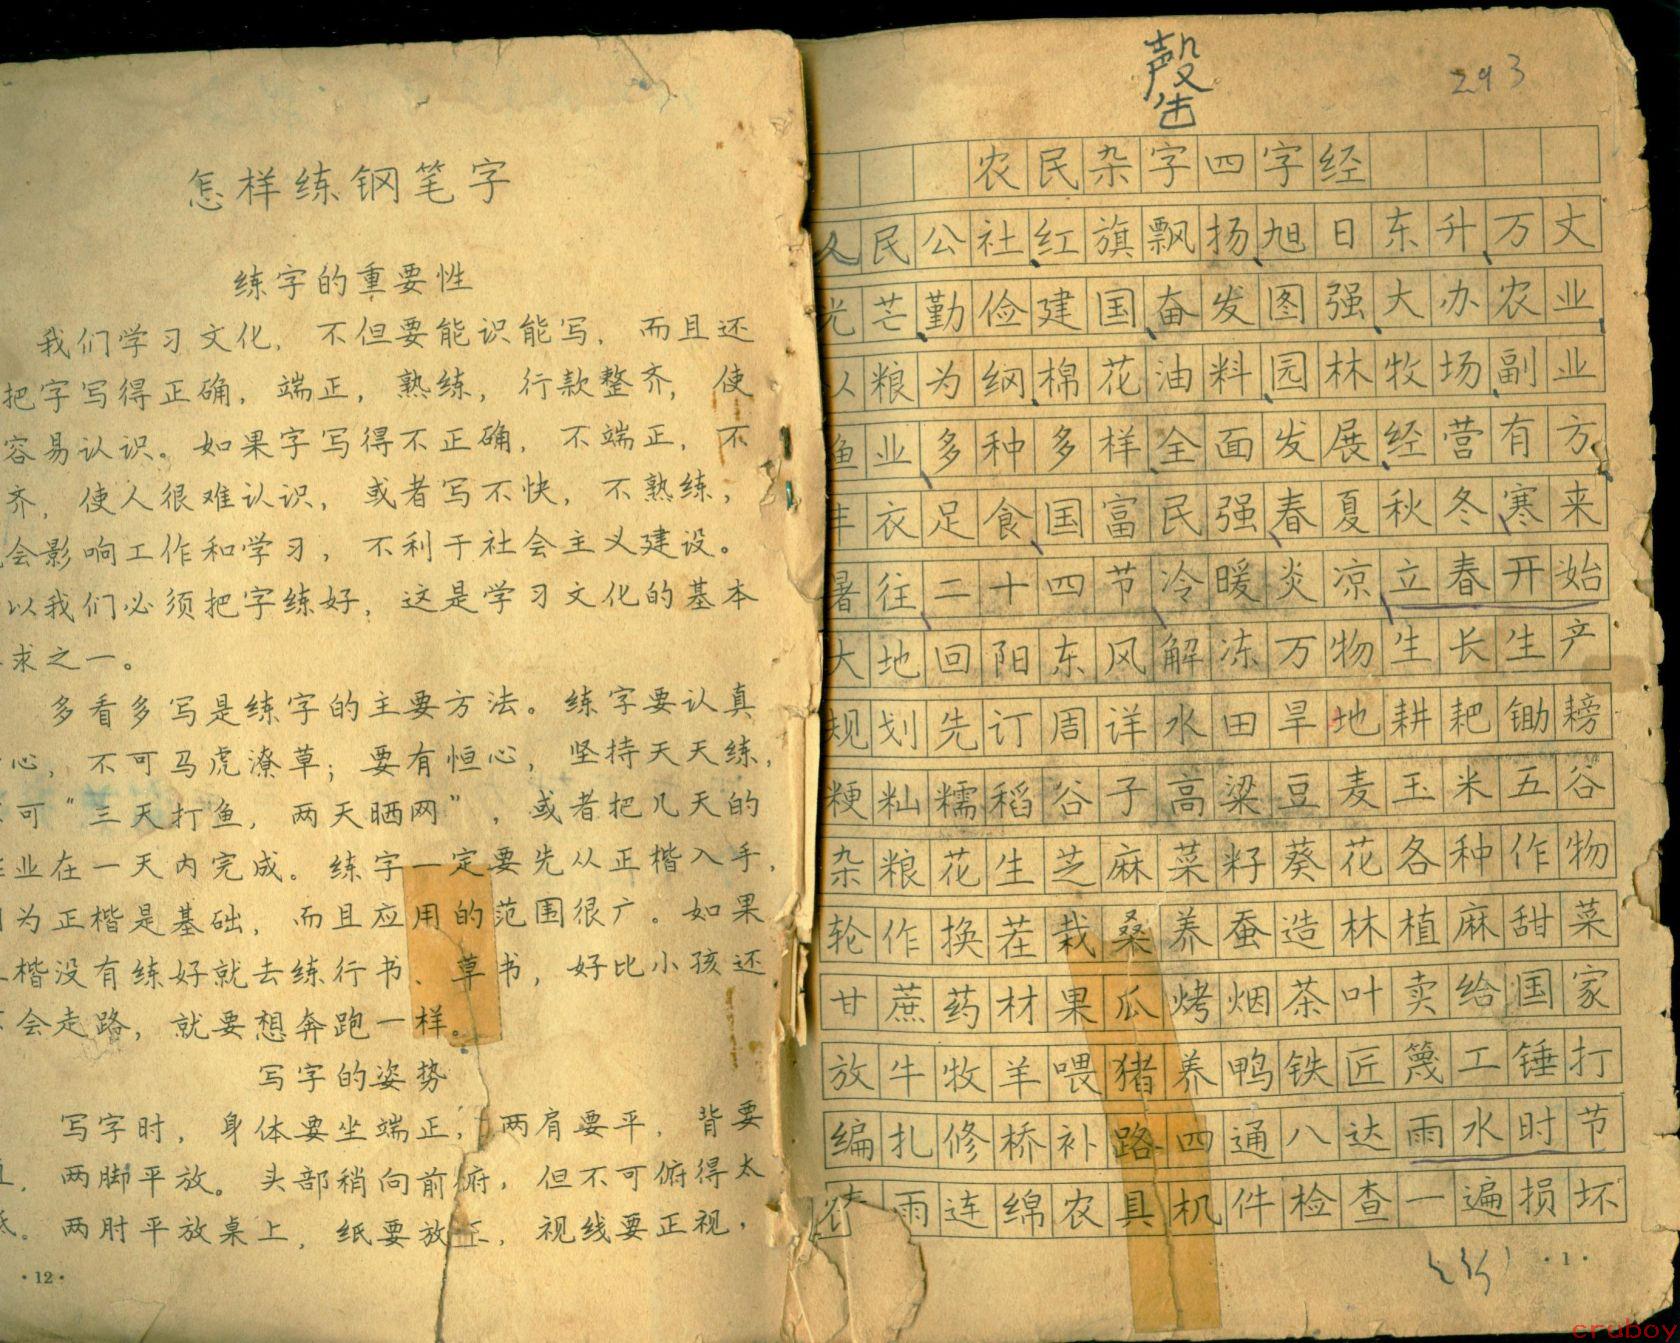 怎样练钢笔字
练字的重要性
我们学习文化，不但要能识能写，而且还
把字写得正确，端正，熟练，行款整齐，使
容易认识。如果字写得不正确，不端正，不
齐，使人很难认识，或者写不快，不熟练，
会影响工作和学习，不利于社会主义建设。
以我们必须把字练好，这是学习文化的基本
求之一。
多看多写是练字的主要方法。练字要认真
心，不可马虎潦草；要有恒心，坚持天天练，
可“三天打鱼，两天晒网”，或者把几天的
业在一天内完成。练字一定要先从正楷入手，
为正楷是基础，而且应用的范围很广。如果
楷没有练好就去练行书、草书，好比小孩还
会走路，就要想奔跑一样。
写字的姿势
写字时，身体要坐端正，两肩要平，背要
，两脚平放。头部稍向前俯，但不可俯得太
。两肘平放桌上，纸要放正，视线要正视，
·12·
293
农民杂字四字经
人民公社红旗飘扬旭日东升万丈
光芒勤俭建国奋发图强大办农业
以粮为纲棉花油料园林牧场副业
鱼业多种多样全面发展经营有方
丰衣足食国富民强春夏秋冬寒来
暑往二十四节冷暖炎凉立春开始
大地回阳东风解冻万物生长生产
规划先订周详水田旱地耕耙锄耪
粳籼糯稻谷子高粱豆麦玉米五谷
杂粮花生芝麻菜籽葵花各种作物
轮作换茬栽桑养蚕造林植麻甜菜
甘蔗药材果瓜烤烟茶叶卖给国家
放牛牧羊喂猪养鸭铁匠篾工锤打
编扎修桥补路四通八达雨水时节
雨连绵农具机件检查一遍损坏
·1·
cruboy